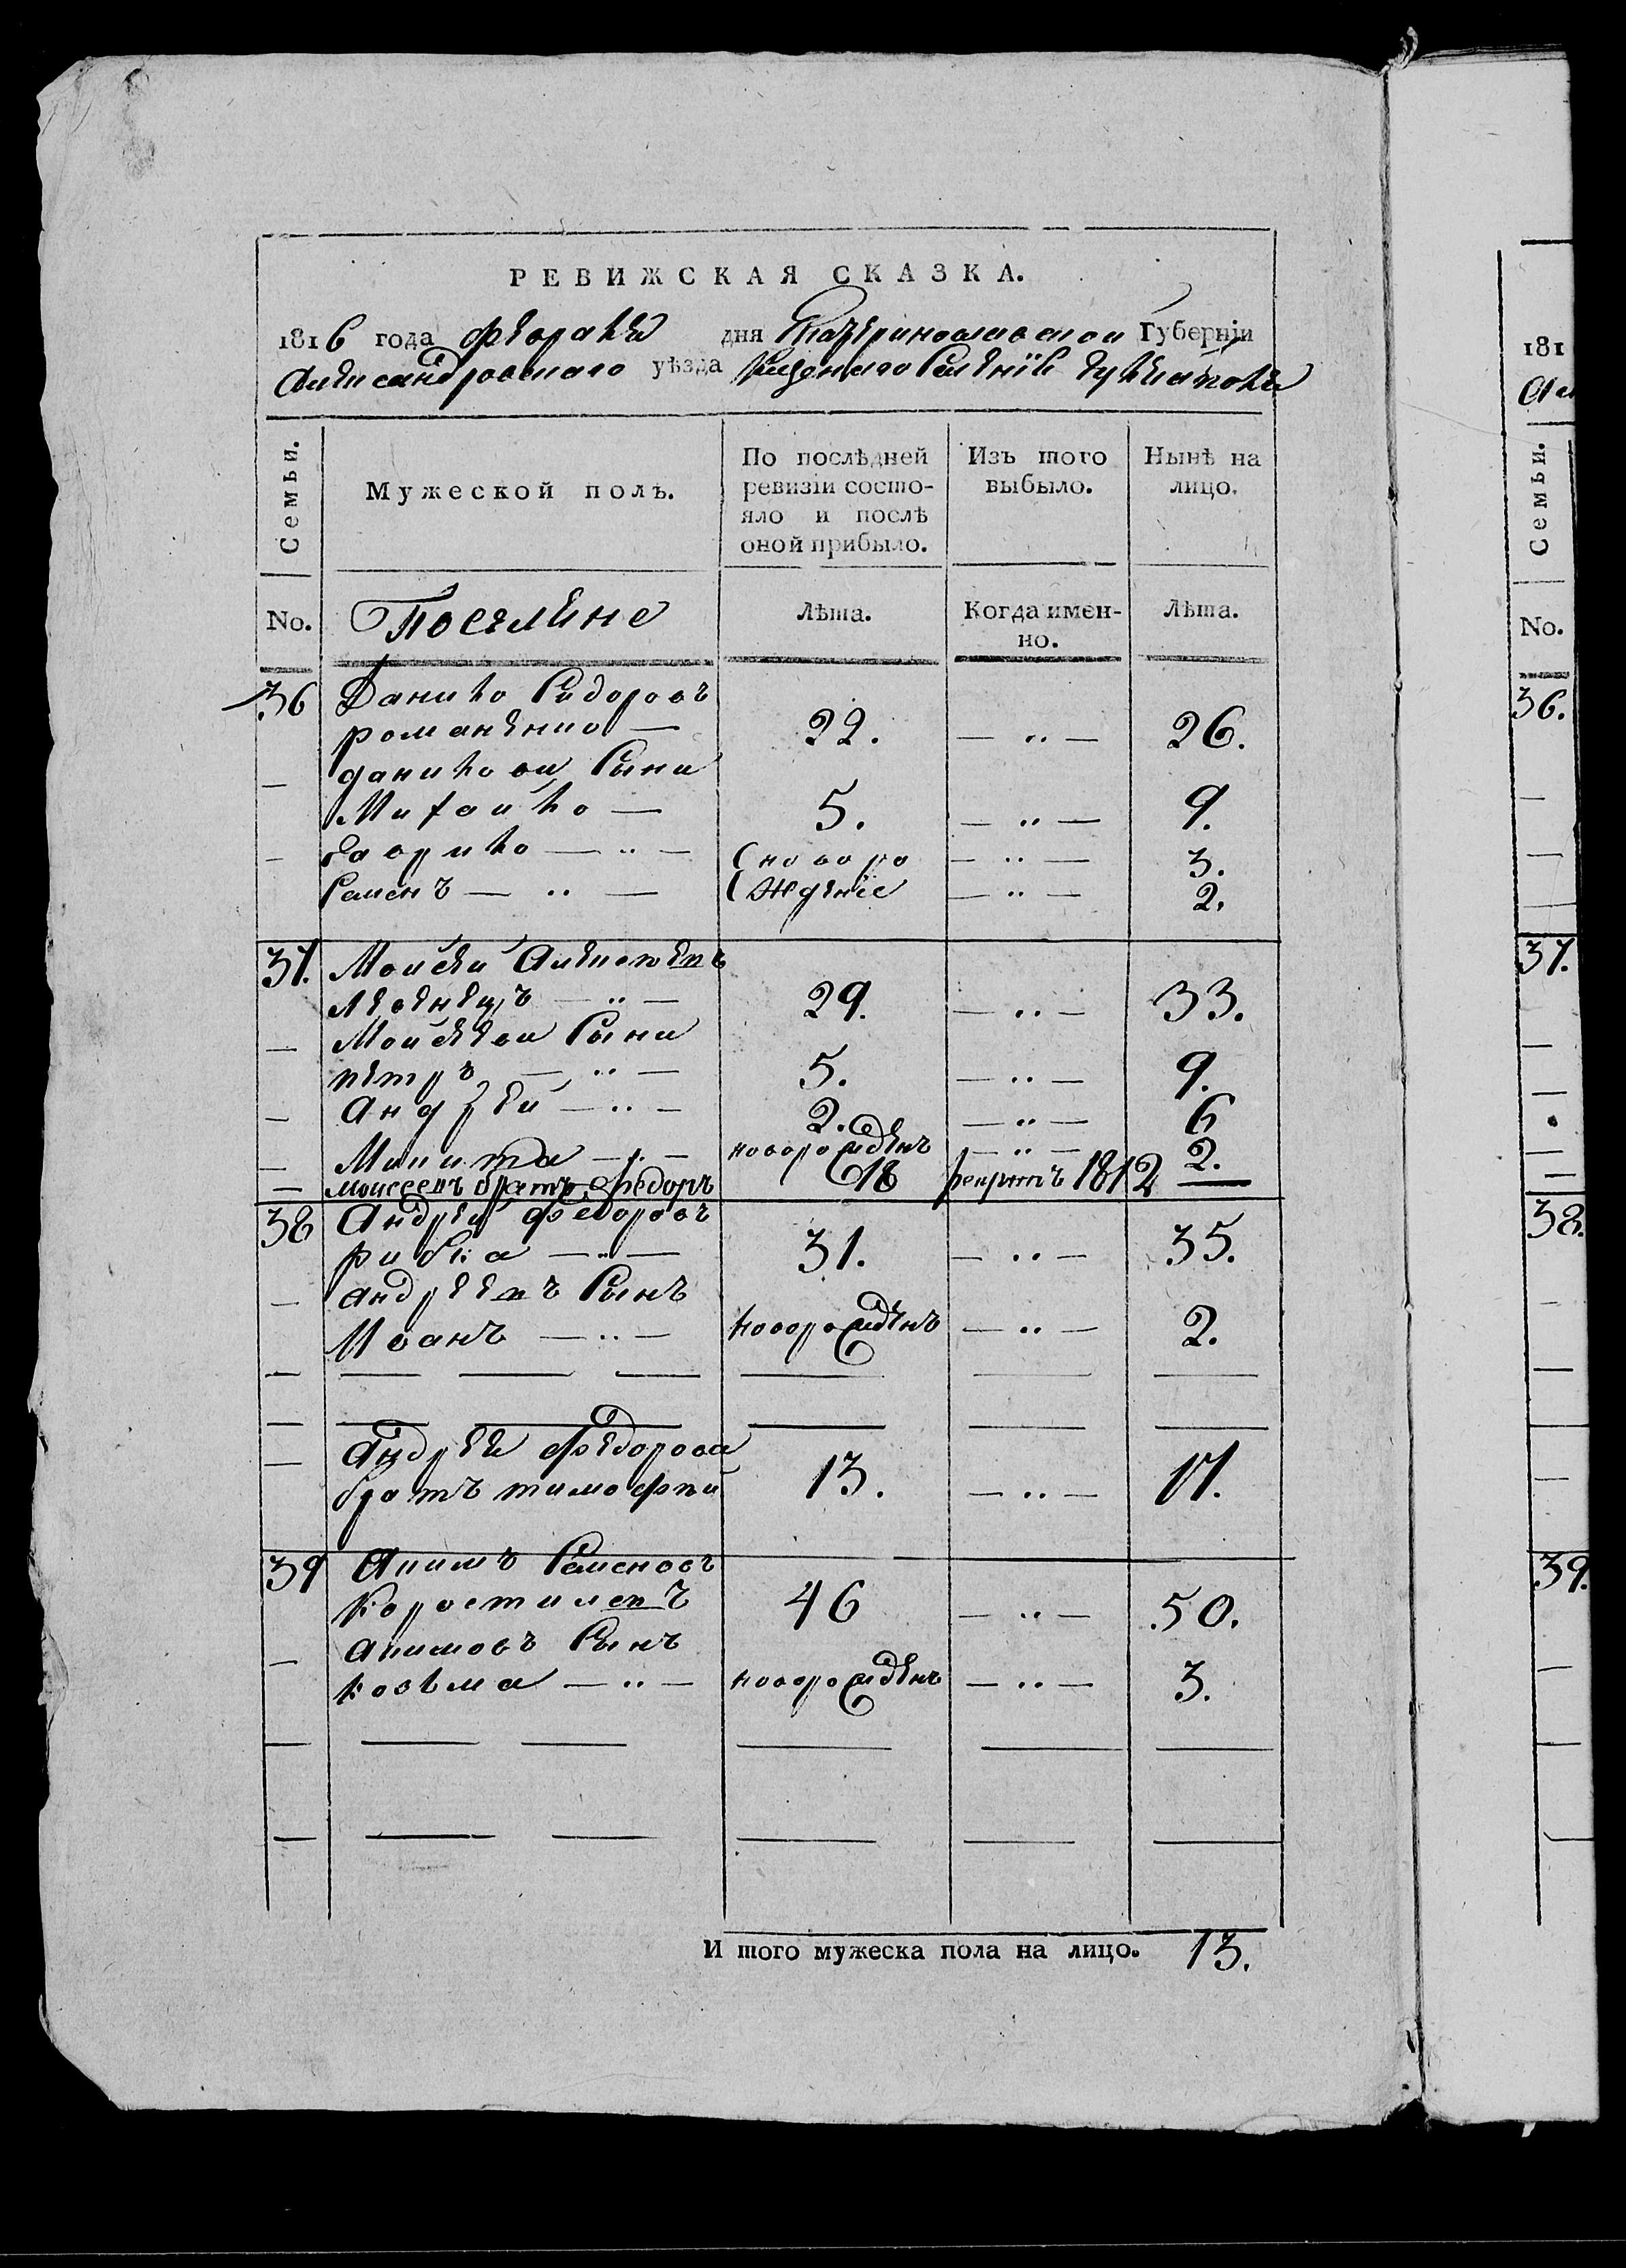 РЕВИЖСКАЯ СКАЗКА.
1816 года февраля дня Екатеринославской Губерніи
Александровскаго уѣзда казеннаго селенія Гуляйполя
Семьи.
Мужеской полъ.
По послѣдней ревизіи состояло и послѣ оной прибыло.
Изъ того выбыло.
Нынѣ на лицо.
No.
Поселяне
Лѣта.
Когда имен-
но.
Лѣта.
36 Данило Сидоровъ
романенко — 22. — .. — 26.
— даниловы Сыни
Михайло — 5. — .. — 9.
— гаврило — .. — новоро — .. — 3.
Семенъ — .. — жденіе — .. — 2.
37. Мойсей Алексеевъ
левенецъ — .. — 29. — .. — 33.
— Мойсеевы Сыни
петръ — .. — 5. — .. — 9.
— Андрей — .. — 2. — .. — 6
— Микита — .. — новорожденъ — .. — 2.
— Моисеевъ братъ федоръ 18 рекрутъ 1812 —
38 Андрей федоровъ
рибка — .. — 31. — .. — 35.
— андреевъ Сынъ
Иванъ — .. — новорожденъ — .. — 2.
— Андрея федорова
братъ тимофей 13. — .. — 17.
39 Акимъ Семеновъ
Коростилевъ 46 — .. — 50.
— акимовъ Сынъ
козьма — .. — новорожденъ — .. — 3.
И того мужеска пола на лицо. 13.
181
No.
Семьи.
36.
37.
38.
39.